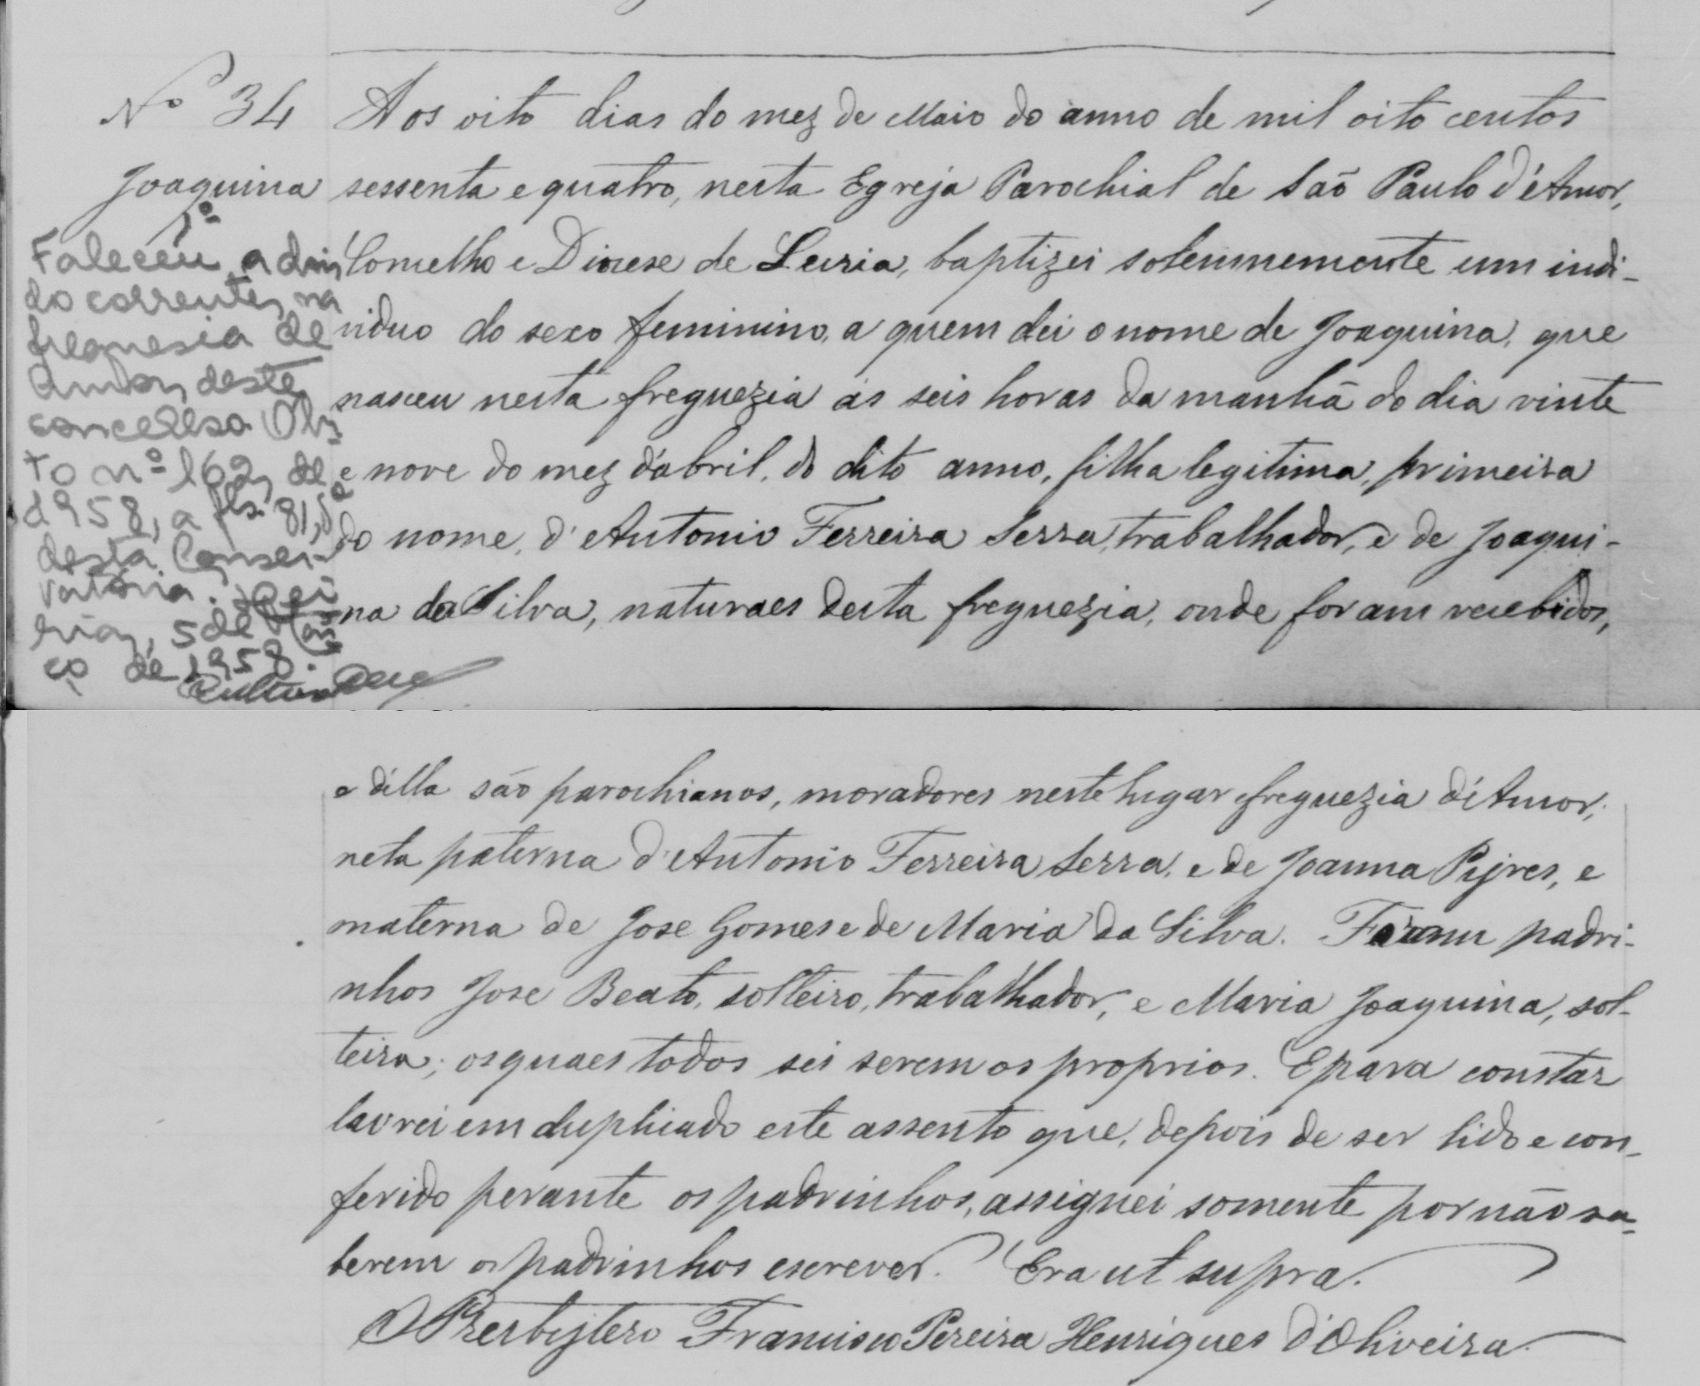 Nº 34
Joaquina
1º
Faleceu a dois
do corrente, na
freguesia de
Amor, deste
concelho. Óbi-
to nº 162, de
1958, a fls. 81, vº
desta Conser-
vatória. Lei-
ria, 5 de Mar-
ço de 1958.
Aos oito dias do mez de Maio do anno de mil oito centos
sessenta e quatro, nesta Egreja Parochial de São Paulo d'Amor,
Concelho e Diocese de Leiria, baptizei solemnemente um indi-
viduo do sexo feminino, a quem dei o nome de Joaquina, que
nasceu nesta freguezia ás seis horas da manhã do dia vinte
e nove do mez d'abril, do dito anno, filha legitima, primeira
do nome, d'Antonio Ferreira Serra, trabalhador, e de Joaqui-
na da Silva, naturaes desta freguezia, onde foram recebidos,
e d'ella são parochianos, moradores neste lugar e freguezia d'Amor;
neta paterna d'Antonio Ferreira Serra, e de Joanna Pijres, e
materna de Jose Gomes e de Maria da Silva. Foram padri-
nhos Jose Beato, solteiro, trabalhador, e Maria Joaquina, sol-
teira; os quaes todos sei serem os proprios. E para constar
lavrei em duplicado este assento que, depois de ser lido e con-
ferido perante os padrinhos, assignei somente por não sa-
berem os padrinhos escrever. Era ut supra.
O Presbytero Francisco Pereira Henriques d'Oliveira